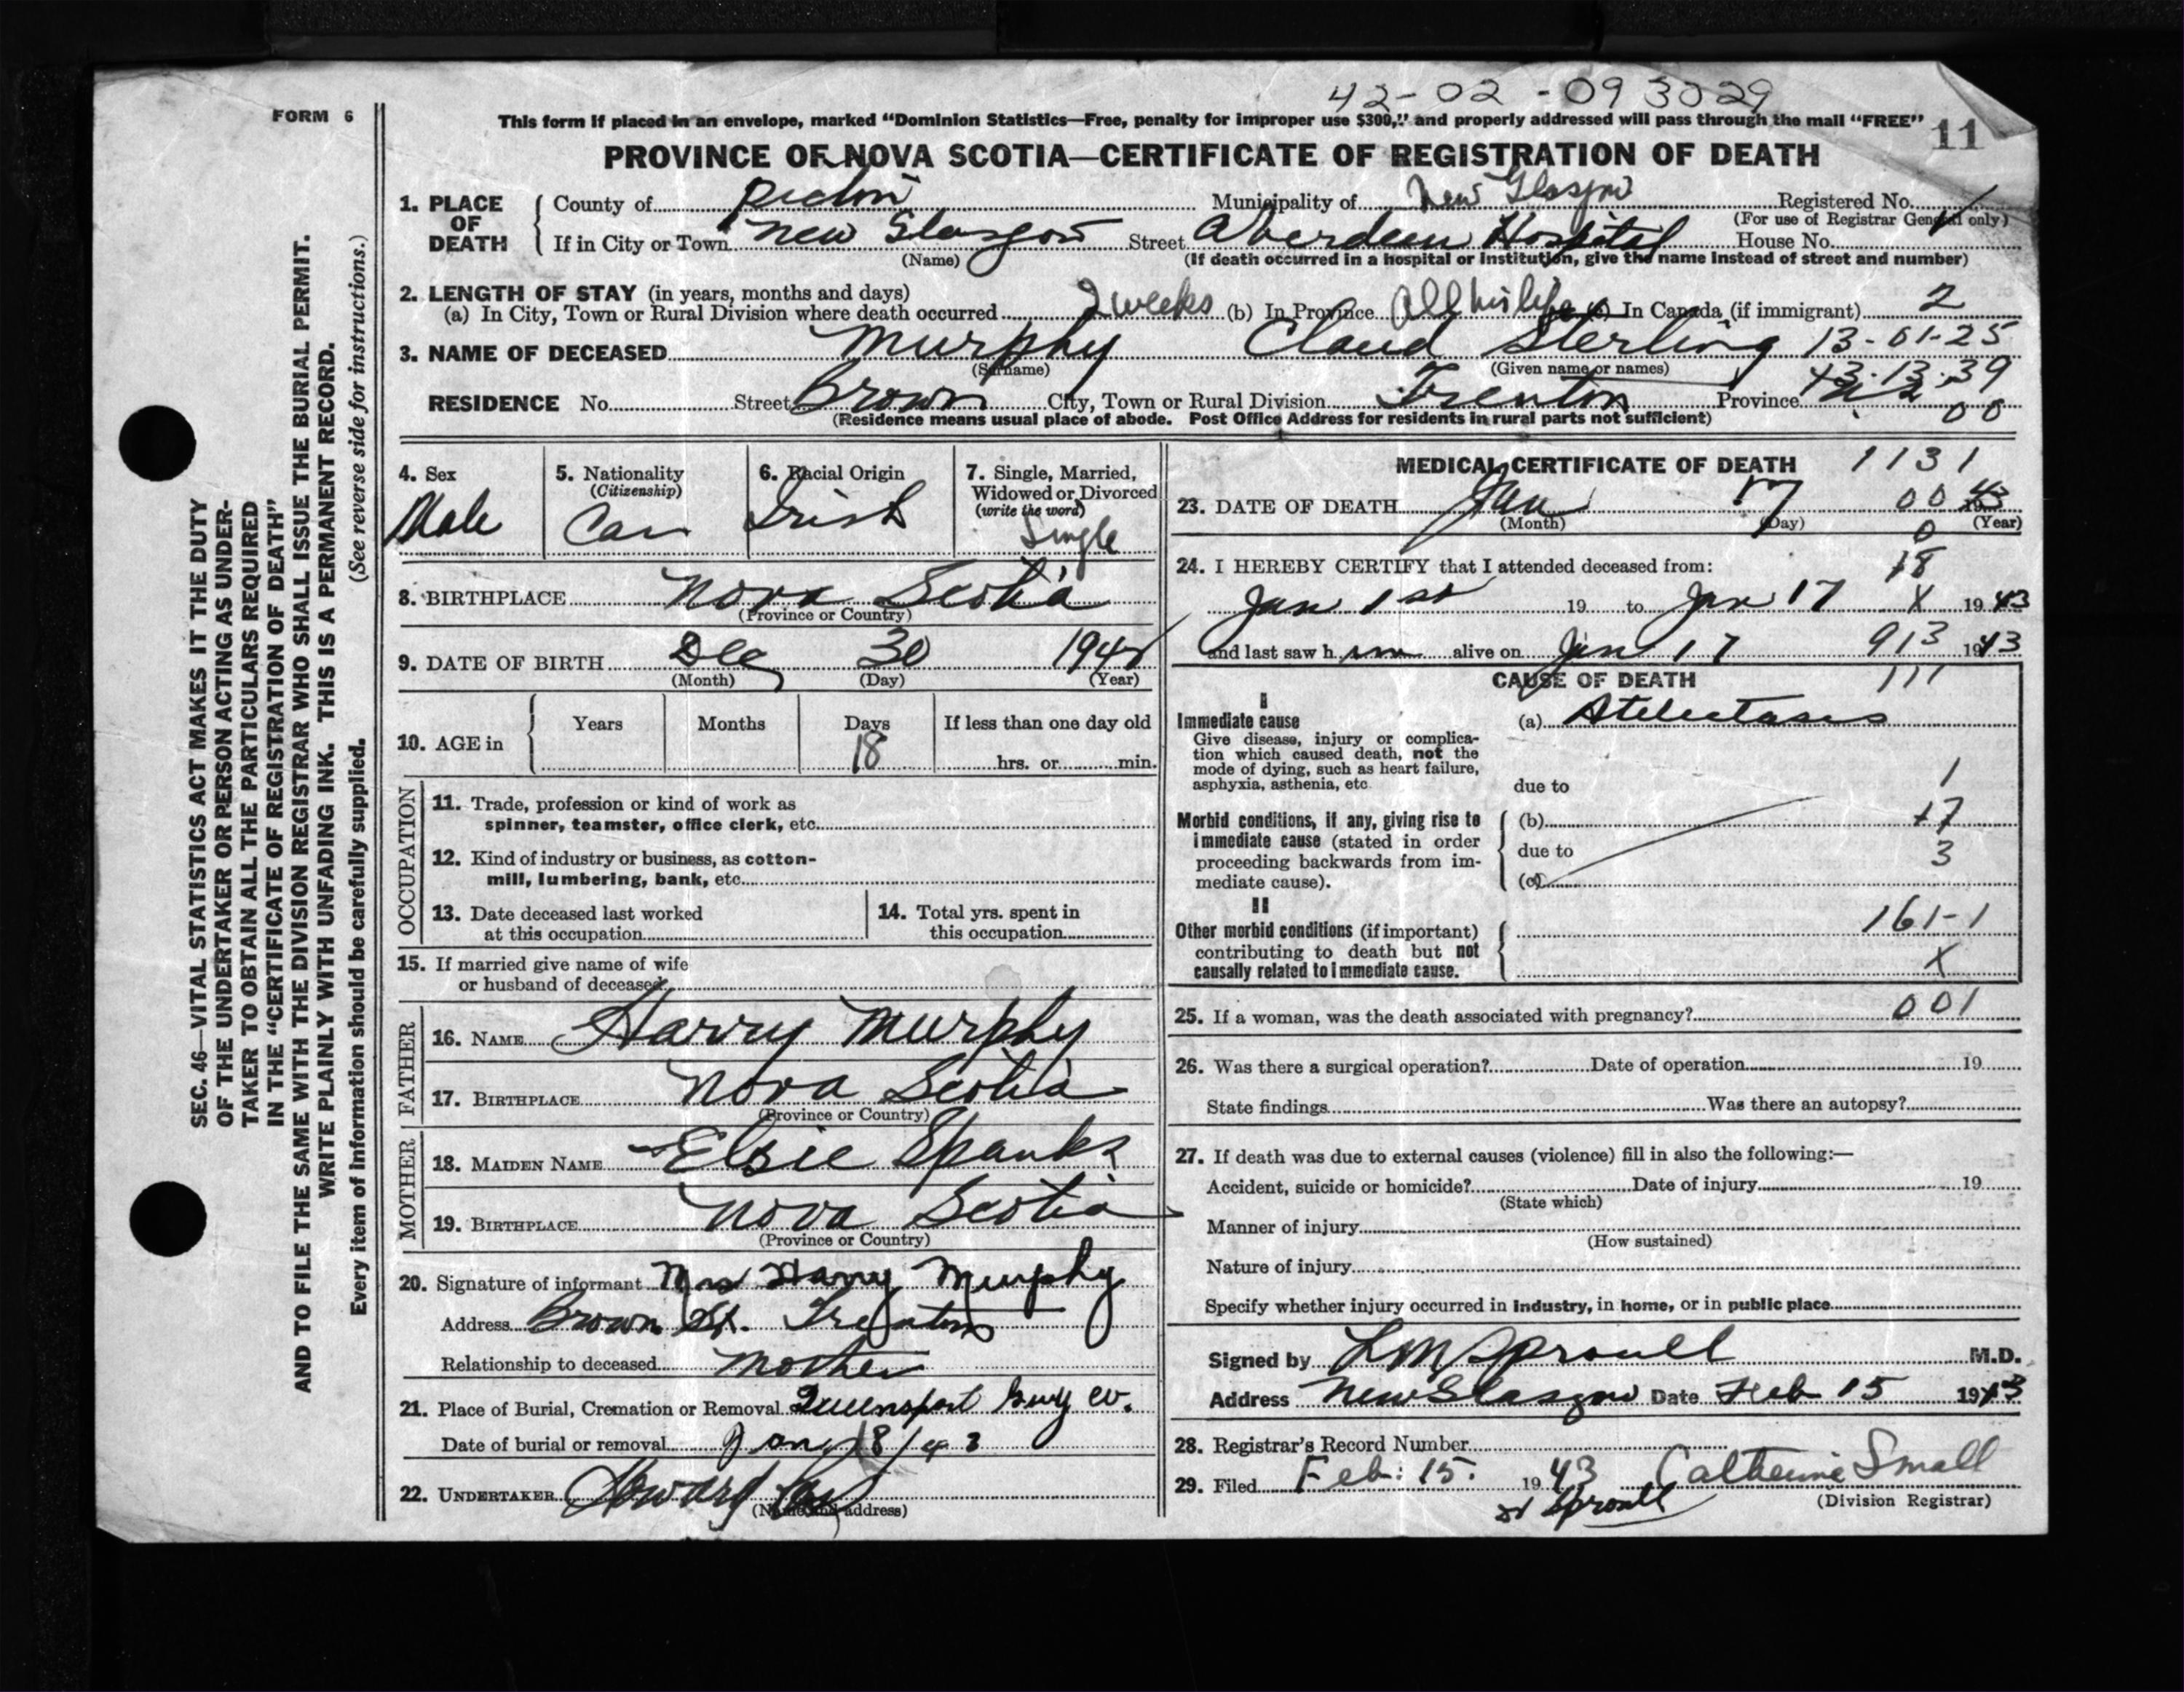 42-02-093029
FORM 6
This form if placed in an envelope, marked "Dominion Statistics—Free, penalty for improper use $300," and properly addressed will pass through the mail "FREE"
11
PROVINCE OF NOVA SCOTIA—CERTIFICATE OF REGISTRATION OF DEATH
1. PLACE OF DEATH
County of Pictou Municipality of New Glasgow Registered No.
(For use of Registrar General only)
If in City or Town New Glasgow Street Aberdeen Hospital House No.
(Name) (If death occurred in a hospital or institution, give the name instead of street and number)
2. LENGTH OF STAY (in years, months and days)
(a) In City, Town or Rural Division where death occurred 2 weeks (b) In Province All his life (c) In Canada (if immigrant) 2
3. NAME OF DECEASED Murphy Claud Sterling 13-01-25
(Surname) (Given name or names) 43-13-39
RESIDENCE No. Street Brown City, Town or Rural Division Trenton Province 00
(Residence means usual place of abode. Post Office Address for residents in rural parts not sufficient)
4. Sex Male
5. Nationality (Citizenship) Can
6. Racial Origin Irish
7. Single, Married, Widowed or Divorced (write the word) Single
8. BIRTHPLACE Nova Scotia
(Province or Country)
9. DATE OF BIRTH Dec 30 194
(Month) (Day) (Year)
10. AGE in Years Months Days If less than one day old
18 hrs. or min.
OCCUPATION
11. Trade, profession or kind of work as spinner, teamster, office clerk, etc.
12. Kind of industry or business, as cotton-mill, lumbering, bank, etc.
13. Date deceased last worked at this occupation
14. Total yrs. spent in this occupation
15. If married give name of wife or husband of deceased
FATHER
16. NAME Harry Murphy
17. BIRTHPLACE Nova Scotia
(Province or Country)
MOTHER
18. MAIDEN NAME Elsie Spanks
19. BIRTHPLACE Nova Scotia
(Province or Country)
20. Signature of informant Mrs Harry Murphy
Address Brown St. Trenton
Relationship to deceased Mother
21. Place of Burial, Cremation or Removal Queensport Guy Co.
Date of burial or removal Jan 18/43
22. UNDERTAKER Howard
(Name and address)
MEDICAL CERTIFICATE OF DEATH 1131
23. DATE OF DEATH Jan 17 00 1943
(Month) (Day) (Year)
0
24. I HEREBY CERTIFY that I attended deceased from: 18
Jan 1st 19 to Jan 17 X 1943
and last saw h im alive on Jan 17 913 1943
CAUSE OF DEATH 111
I
Immediate cause (a) Atelectasis
Give disease, injury or complication which caused death, not the mode of dying, such as heart failure, asphyxia, asthenia, etc.
due to 1
Morbid conditions, if any, giving rise to immediate cause (stated in order proceeding backwards from immediate cause).
(b) 17
due to 3
(c)
II
Other morbid conditions (if important) contributing to death but not causally related to immediate cause.
161-1
X
25. If a woman, was the death associated with pregnancy? 001
26. Was there a surgical operation? Date of operation 19
State findings Was there an autopsy?
27. If death was due to external causes (violence) fill in also the following:—
Accident, suicide or homicide? Date of injury 19
(State which)
Manner of injury
(How sustained)
Nature of injury
Specify whether injury occurred in industry, in home, or in public place
Signed by L M Sproull M.D.
Address New Glasgow Date Feb 15 1943
28. Registrar's Record Number
29. Filed Feb: 15. 1943 Catherine Small
(Division Registrar)
Dr Sproull
SEC. 46—VITAL STATISTICS ACT MAKES IT THE DUTY
OF THE UNDERTAKER OR PERSON ACTING AS UNDER-
TAKER TO OBTAIN ALL THE PARTICULARS REQUIRED
IN THE "CERTIFICATE OF REGISTRATION OF DEATH"
AND TO FILE THE SAME WITH THE DIVISION REGISTRAR WHO SHALL ISSUE THE BURIAL PERMIT.
WRITE PLAINLY WITH UNFADING INK. THIS IS A PERMANENT RECORD.
Every item of information should be carefully supplied. (See reverse side for instructions.)